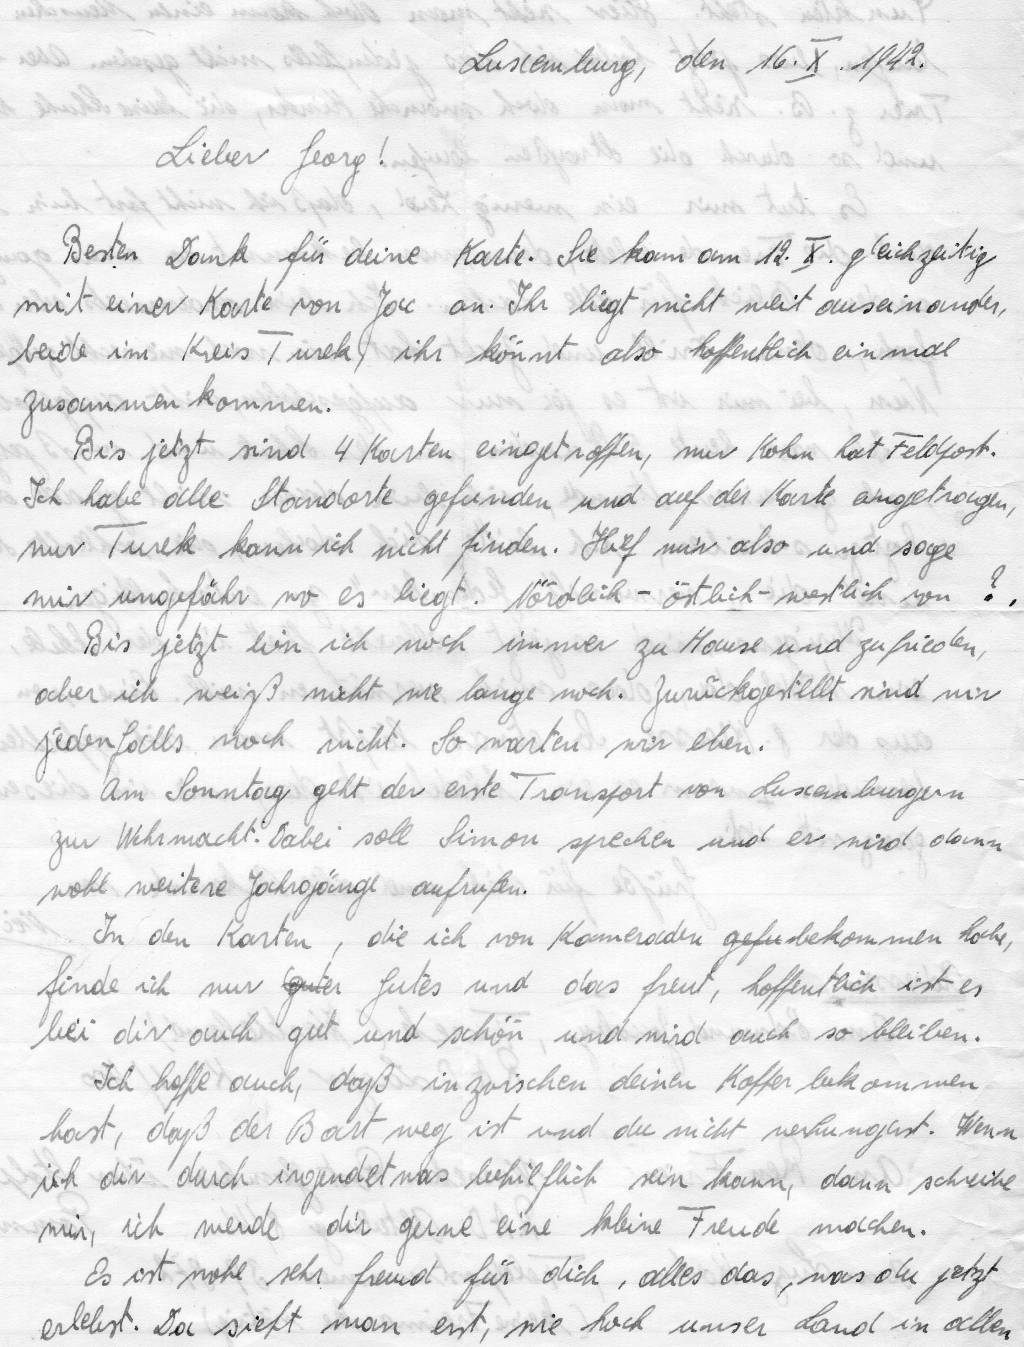 Luxemburg, den 16. X. 1942.
Lieber Georg!
Besten Dank für deine Karte. Sie kam am 12. X. gleichzeitig
mit einer Karte von Jac an. Ihr liegt nicht weit auseinander,
beide im Kreis Turek, ihr könnt also hoffentlich einmal
zusammenkommen.
Bis jetzt sind 4 Karten eingetroffen, nur Kohn hat Feldpost.
Ich habe alle Standorte gefunden und auf der Karte eingetragen,
nur Turek kann ich nicht finden. Hilf mir also und sage
mir ungefähr wo es liegt. Nördlich - östlich - westlich von ?.
Bis jetzt bin ich noch immer zu Hause und zufrieden,
aber ich weiß nicht wie lange noch. Zurückgestellt sind wir
jedenfalls noch nicht. So warten wir eben.
Am Sonntag geht der erste Transport von Luxemburgern
zur Wehrmacht. Dabei soll Simon sprechen und er wird dann
wohl weitere Jahrgänge aufrufen.
In den Karten, die ich von Kameraden gefu bekommen habe,
finde ich nur guter Gutes und das freut, hoffentlich ist es
bei dir auch gut und schön, und wird auch so bleiben.
Ich hoffe auch, daß inzwischen deinen Koffer bekommen
hast, daß der Bart weg ist und du nicht verhungerst. Wenn
ich dir durch irgendetwas behilflich sein kann, dann schreibe
mir, ich werde dir gerne eine kleine Freude machen.
Es ist wohl sehr fremd für dich, alles das, was du jetzt
erlebst. Da sieht man erst, wie hoch unser Land in allen